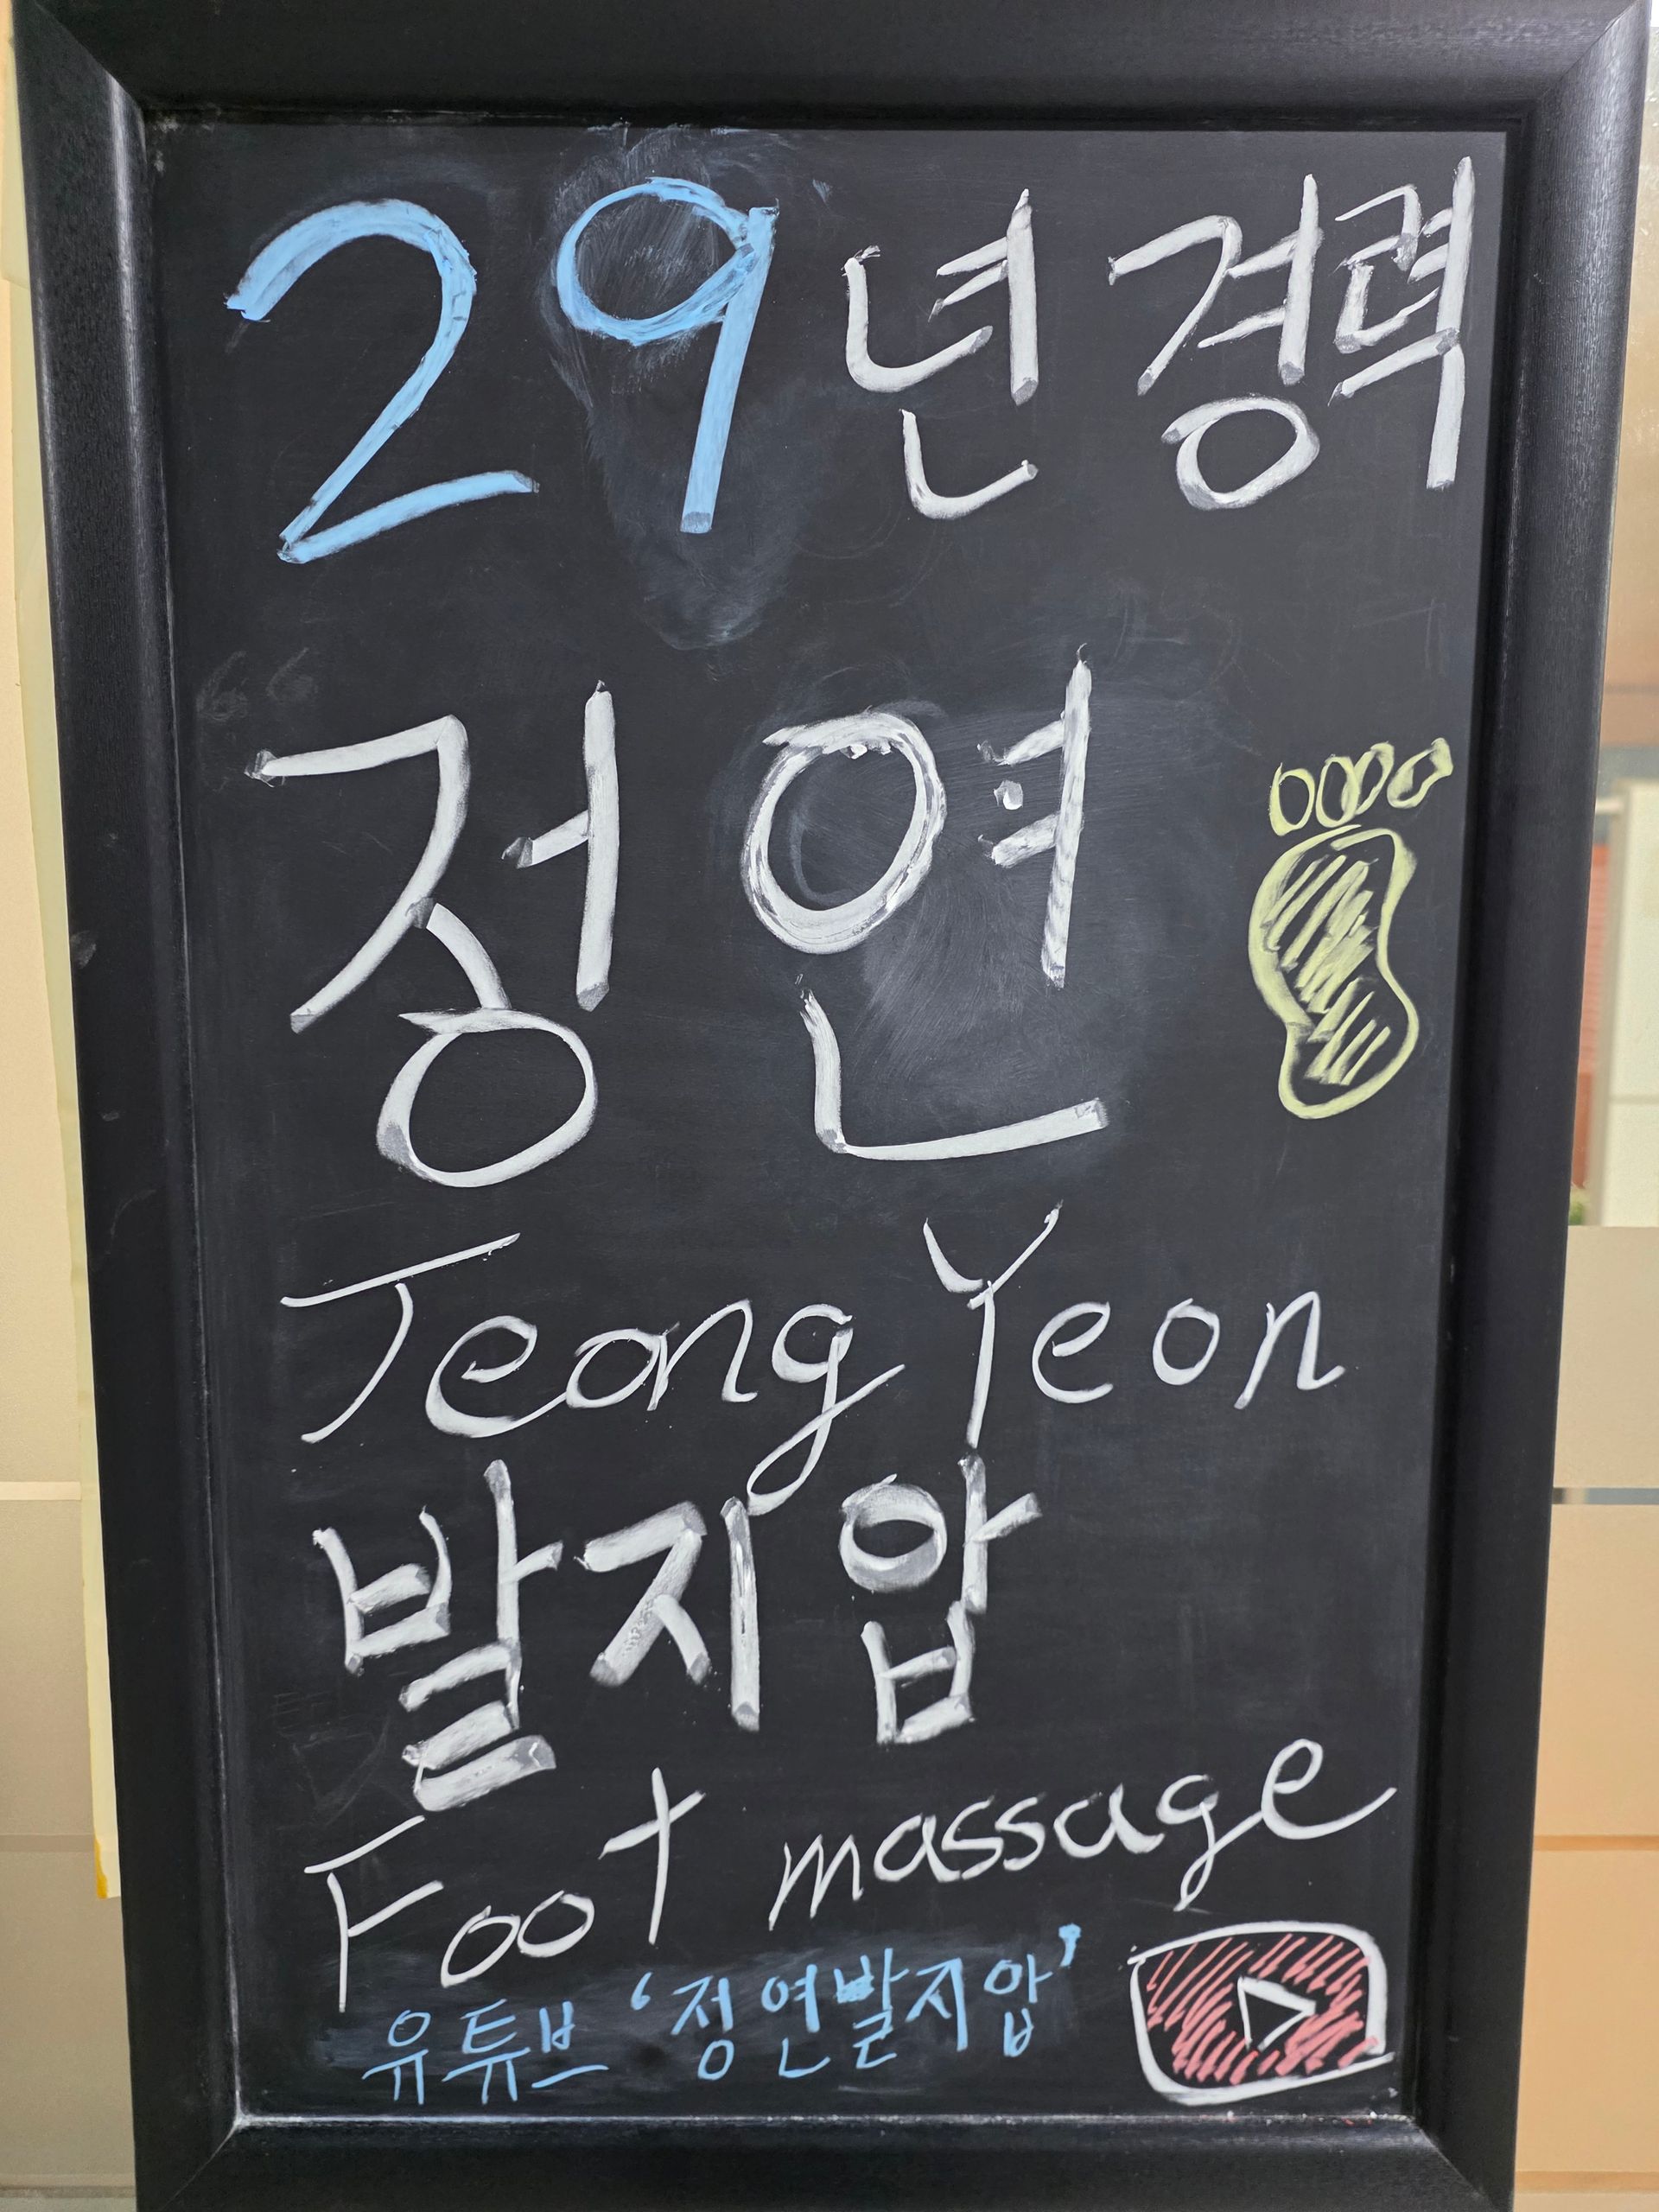 29년 경력
정연
Jeong Yeon
발지압
Foot massage
유튜브 '정연발지압'